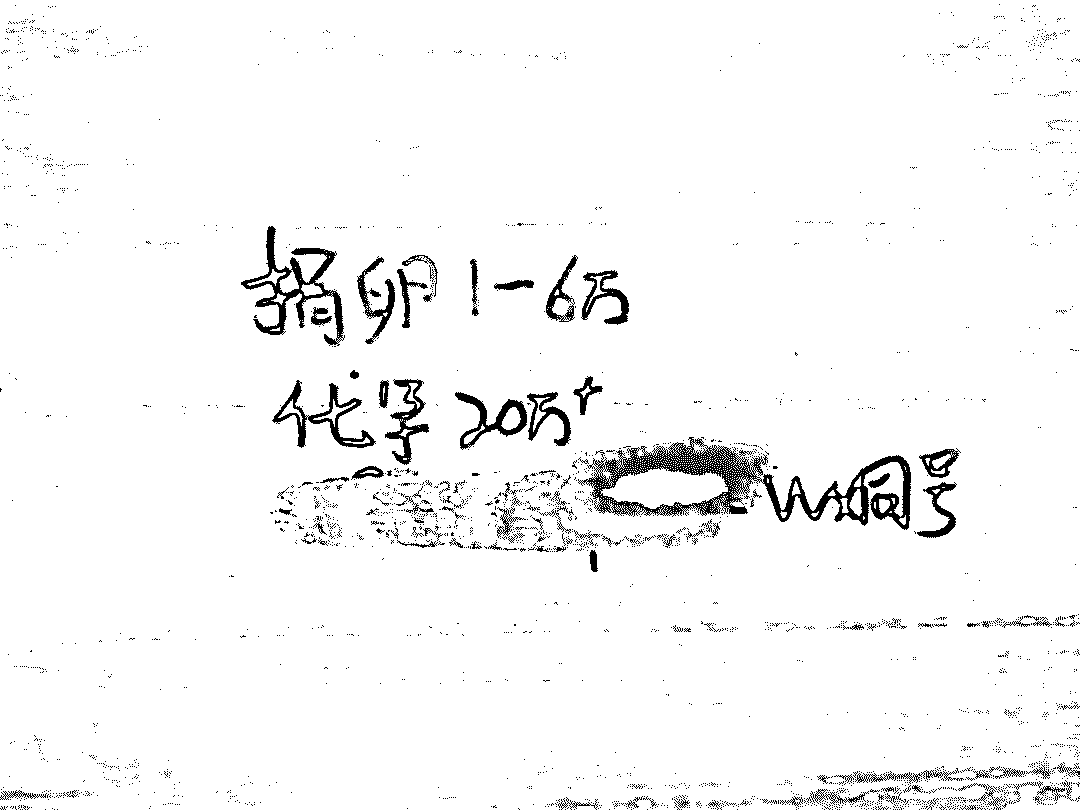 捐卵1-6万
代孕20万+
Wx同号